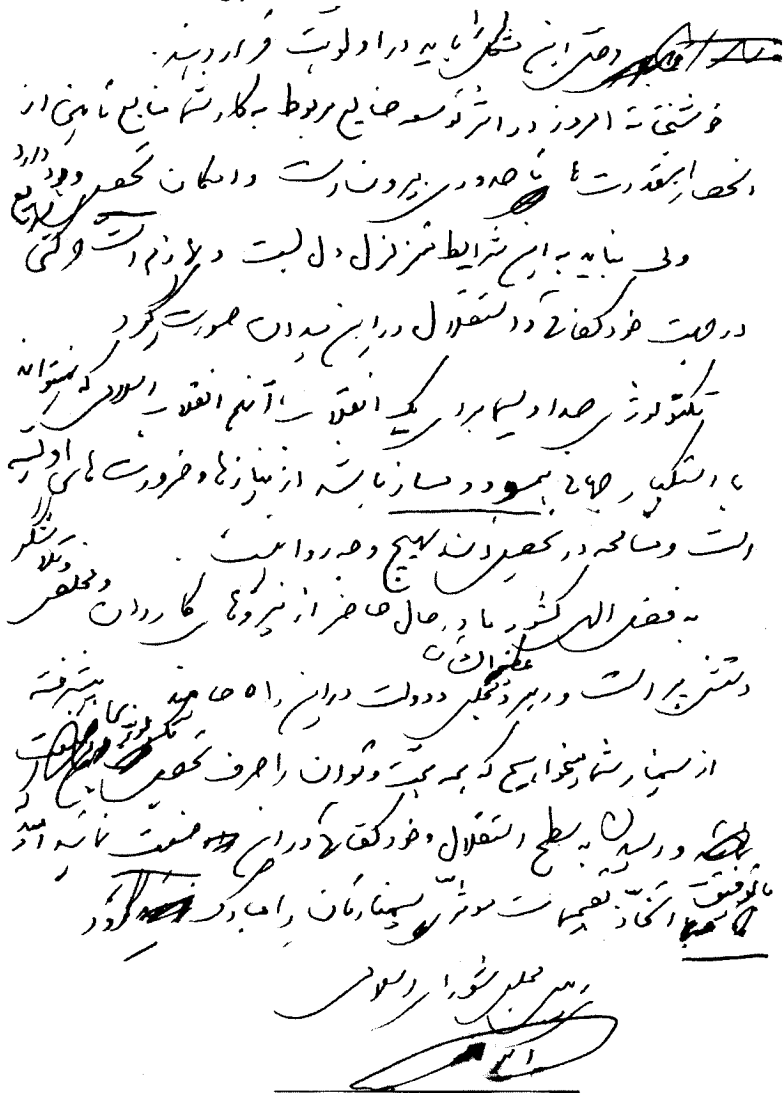 و حتی این مشکل را باید در اولویت قرار دهند.
خوشبختانه امروز در اثر توسعه صنایع مربوط به کار شما منابع تأمین از
انحصار ابرقدرت ها تا حدودی بیرون است و امکان تحصیل وجود دارد
ولی نباید به این شرایط متزلزل دل بست و لازم است حرکتی
در جهت خودکفائی و استقلال در این میدان صورت گیرد
تکنولوژی صدا و سیما برای یک انقلاب آنهم انقلاب اسلامی که نمیتواند
با استکبار جهانی همسو و دمساز باشد از نیازها و ضرورت های اولیه
است و مسامحه در تحصیل آن به هیچ وجه روا نیست
به فضل الهی کشور ما در حال حاضر از نیروهای کاردان و مخلص و تلاشگر
غنی تر است و رهبر عظیم الشأن و مجلس و دولت در این راه
از سمینار شما میخواهیم که همه همت و توان را صرف تحصیل تکنولوژی پیشرفته
و رسیدن به سطح استقلال و خودکفائی در این صنعت نمائید
با توفیق اتخاذ تصمیمات مؤثر سمینارتان را مبارک
رئیس مجلس شورای اسلامی